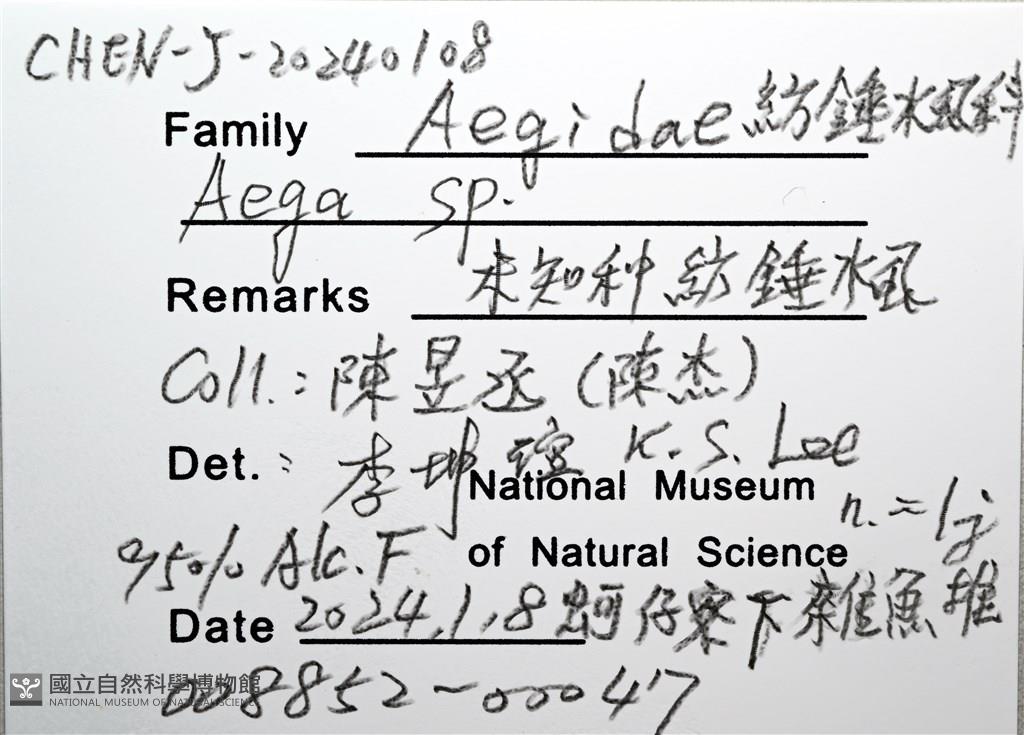 CHEN-J-20240108
Family Aegidae 紡錘水蝨科
Aega sp.
Remarks 未知种紡錘水蝨
Coll.: 陳昱丞 (陳杰)
Det.: 李坤瑄 K. S. Lee
National Museum
n. = 1j
95% Alc. F. of Natural Science
Date 2024.1.8 蚵仔寮下雜魚堆
國立自然科學博物館
NATIONAL MUSEUM OF NATURAL SCIENCE
008852-00047